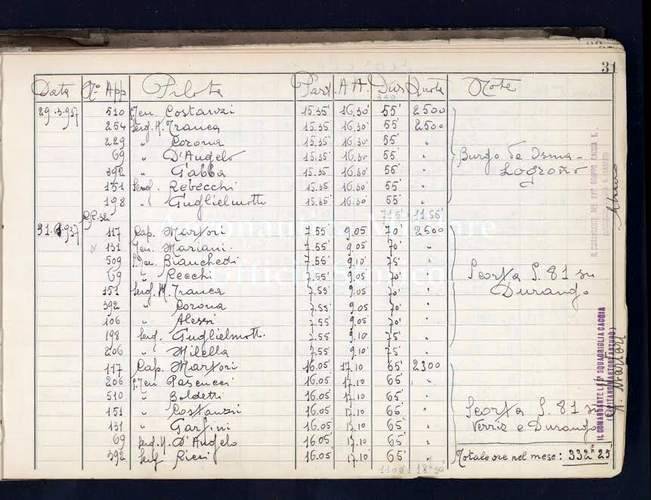 31
Data Nº App Pilota Part. A.A. Dur Quota Note
29.3.937 510 Ten. Costanzi 15.35' 16.30' 55' 2500
254 Serg. M. Franca 15.35 16.30 55' 2500
229 " Corona 15.35 16.30 55'
69 " D'Angelo 15.35 16.30 55' Burgo de Osma-
392 " Gabba 15.35 16.30 55' Logroño
151 Serg. Rebecchi 15.35 16.30 55'
198 " Guglielmotti 15.35 16.30 55'
31.3.937 117 Cap. Martori 7.55' 9.05 70' 2500
131 Ten. Mariani 7.55 9.05 70' "
509 Bianchedi 7.55 9.10 75'
69 " Recchi 7.55 9.05 70' Scorta S. 81 su
151 Serg. M. Franca 7.55 9.05 70' Durango
392 " Corona 7.55 9.05 70'
106 " Alessi 7.55 9.05 70'
198 Serg. Guglielmotti 7.55 9.10 75'
206 " Milella 7.55 9.10 75'
117 Cap. Martori 16.05 17.10 65' 2300
206 Pascucci 16.05 17.10 65'
510 " Boldetti 16.05 17.10 65'
151 " Costanzi 16.05 17.10 65' Scorta S. 81 su
131 " Garfini 16.05 17.10 65' Verriz e Durango
69 Serg. M. D'Angelo 16.05 17.10 65'
392 Serg. Ricci 16.05 17.10 65' Totale ore nel mese: 332º 25'
IL COMANDANTE LA SQUADRIGLIA CACCIA